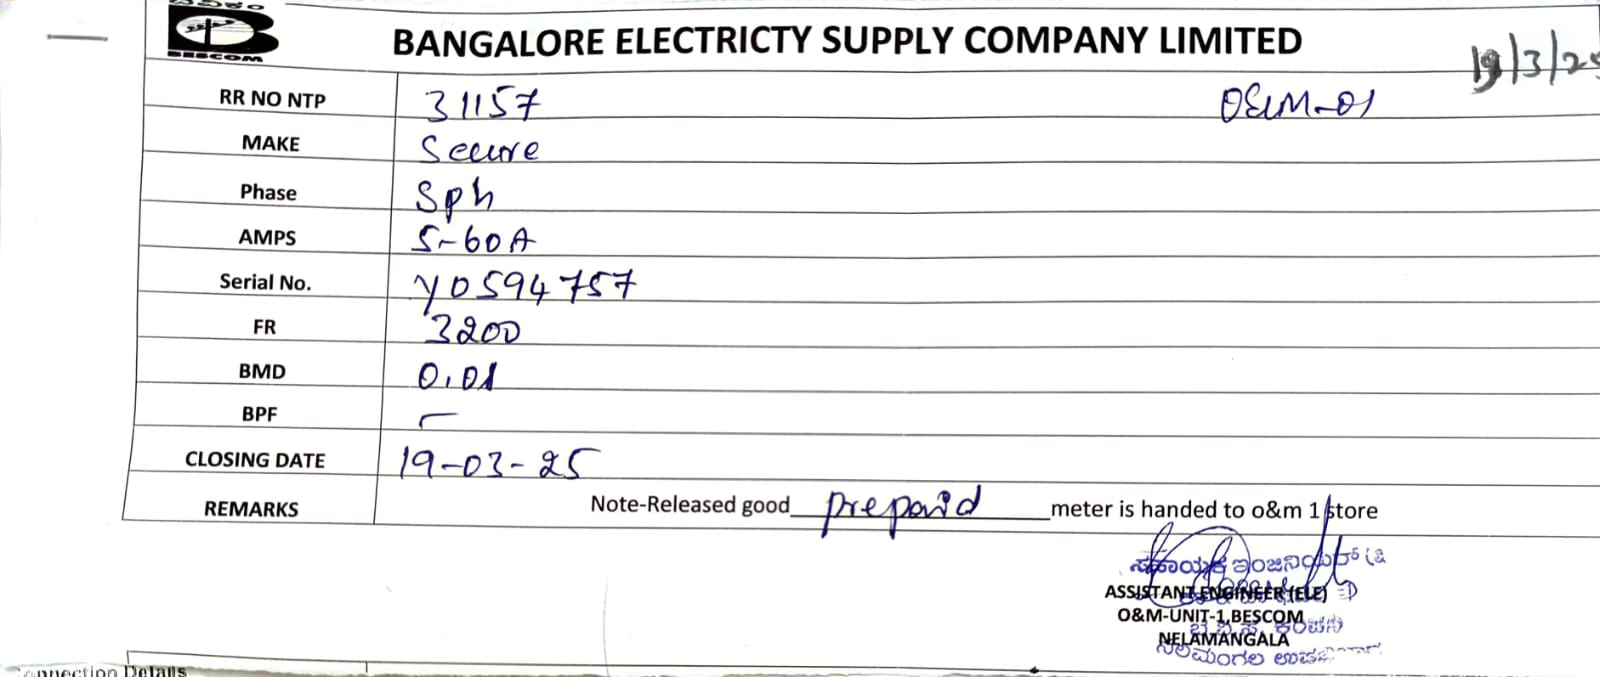 BESCOM
BANGALORE ELECTRICTY SUPPLY COMPANY LIMITED
19/3/25
RR NO NTP 31157 O&M-01
MAKE Secure
Phase Sph
AMPS 5-60A
Serial No. Y0594757
FR 3200
BMD 0.01
BPF -
CLOSING DATE 19-03-25
REMARKS Note-Released good prepaid meter is handed to o&m 1 store
ಸಹಾಯಕ ಇಂಜಿನಿಯರ್ (ವಿ
ASSISTANT ENGINEER (ELE)
O&M-UNIT-1,BESCOM
NELAMANGALA
ನೆಲಮಂಗಲ
Connection Details